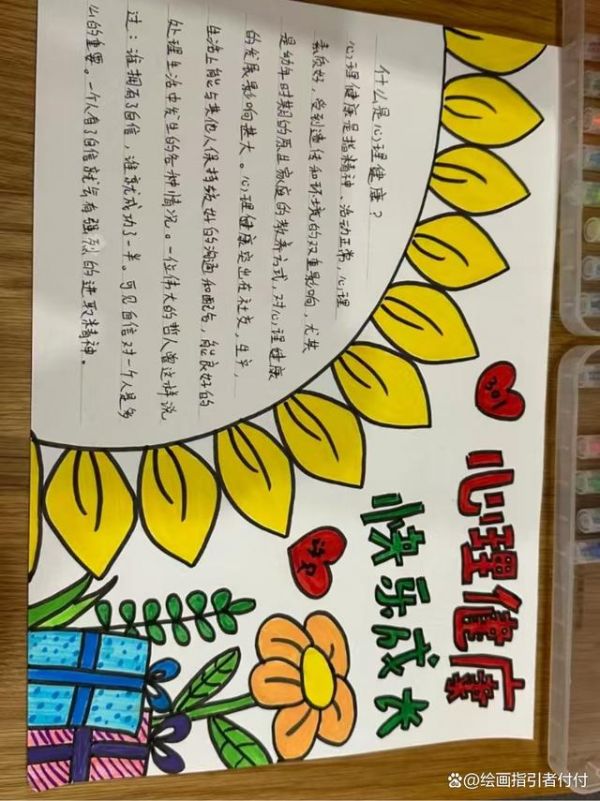 心理健康
快乐成长
什么是心理健康?
心理健康是指精神、活动正常,心理
素质好,受到遗传和环境的双重影响,尤其
是幼年时期的原生家庭的教养方式,对心理健康
的发展影响甚大。心理健康突出在社交、生产,
生活上能与其他人保持较好的沟通和配合,能良好的
处理生活中发生的各种情况。一位伟大的哲人曾这样说
过:谁拥有了自信,谁就成功了一半。可见自信对一个人是多
么的重要。一个人有了自信就会有强烈的进取精神。
@绘画指引者付付